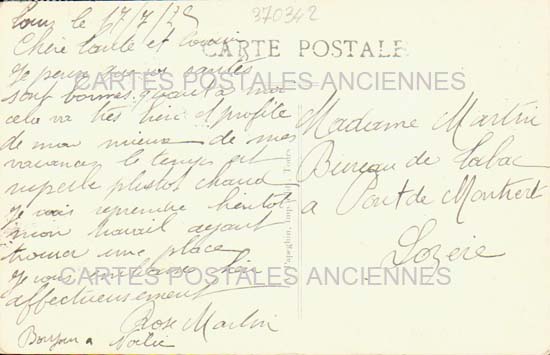 Tours le 17/7/25
370342
Chère tante et Cousin
CARTE POSTALE
Je pense que vos santés
CARTES POSTALES ANCIENNES
sont bonnes quant à moi
cela va très bien et profite
de mon mieux de mes
vacances le temps est
superbe plutot chaud
Je vais reprendre bientot
mon travail ayant
trouver une place
Je vous embrasse bien
affectueusement
Rose Martin
Bonjour a
Madame Martin
Bureau de Tabac
a Pont de Montvert
Lozère
CARTES POSTALES ANCIENNES
Papeghin, Tours